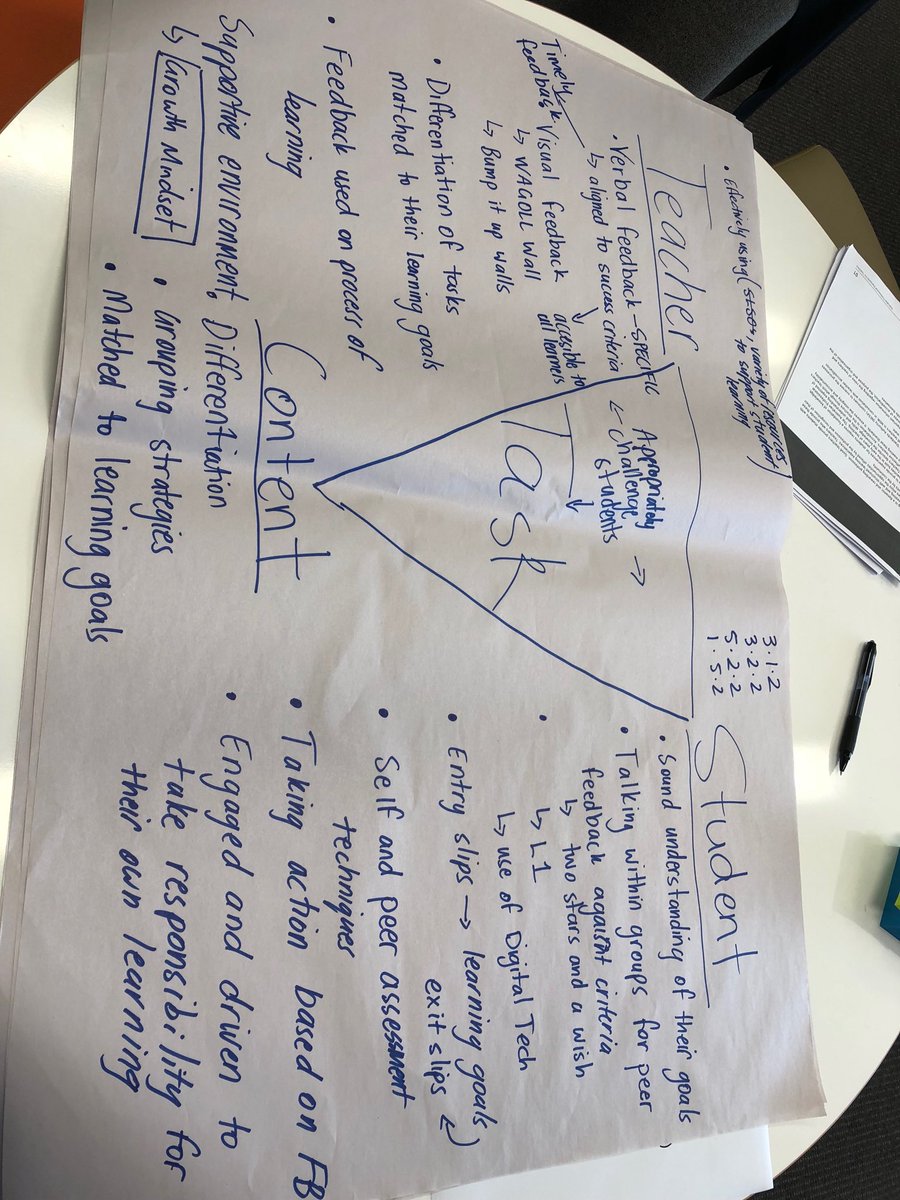 Teacher
• Effectively using (SLSOs, variety of resources)
to support student
learning
Timely
feedback
• Verbal feedback – SPECIFIC
↳ aligned to success criteria
Visual feedback
↳ WAGOLL Wall
↳ Bump it up walls
accessible to
all learners
• Differentiation of tasks
matched to their learning goals
• Feedback used on process of
learning
Supportive environment
↳ Growth Mindset
Task
Appropriately
challenge
students
Content
Differentiation
• Grouping strategies
• Matched to learning goals
3.1.2
3.2.2
5.2.2
1.5.2
Student
• Sound understanding of their goals
• Talking within groups for peer
feedback against criteria
↳ two stars and a wish
• ↳ L1
↳ use of Digital Tech
• Entry slips → learning goals
exit slips
• Self and peer assessment
techniques
• Taking action based on FB
• Engaged and driven to
take responsibility for
their own learning